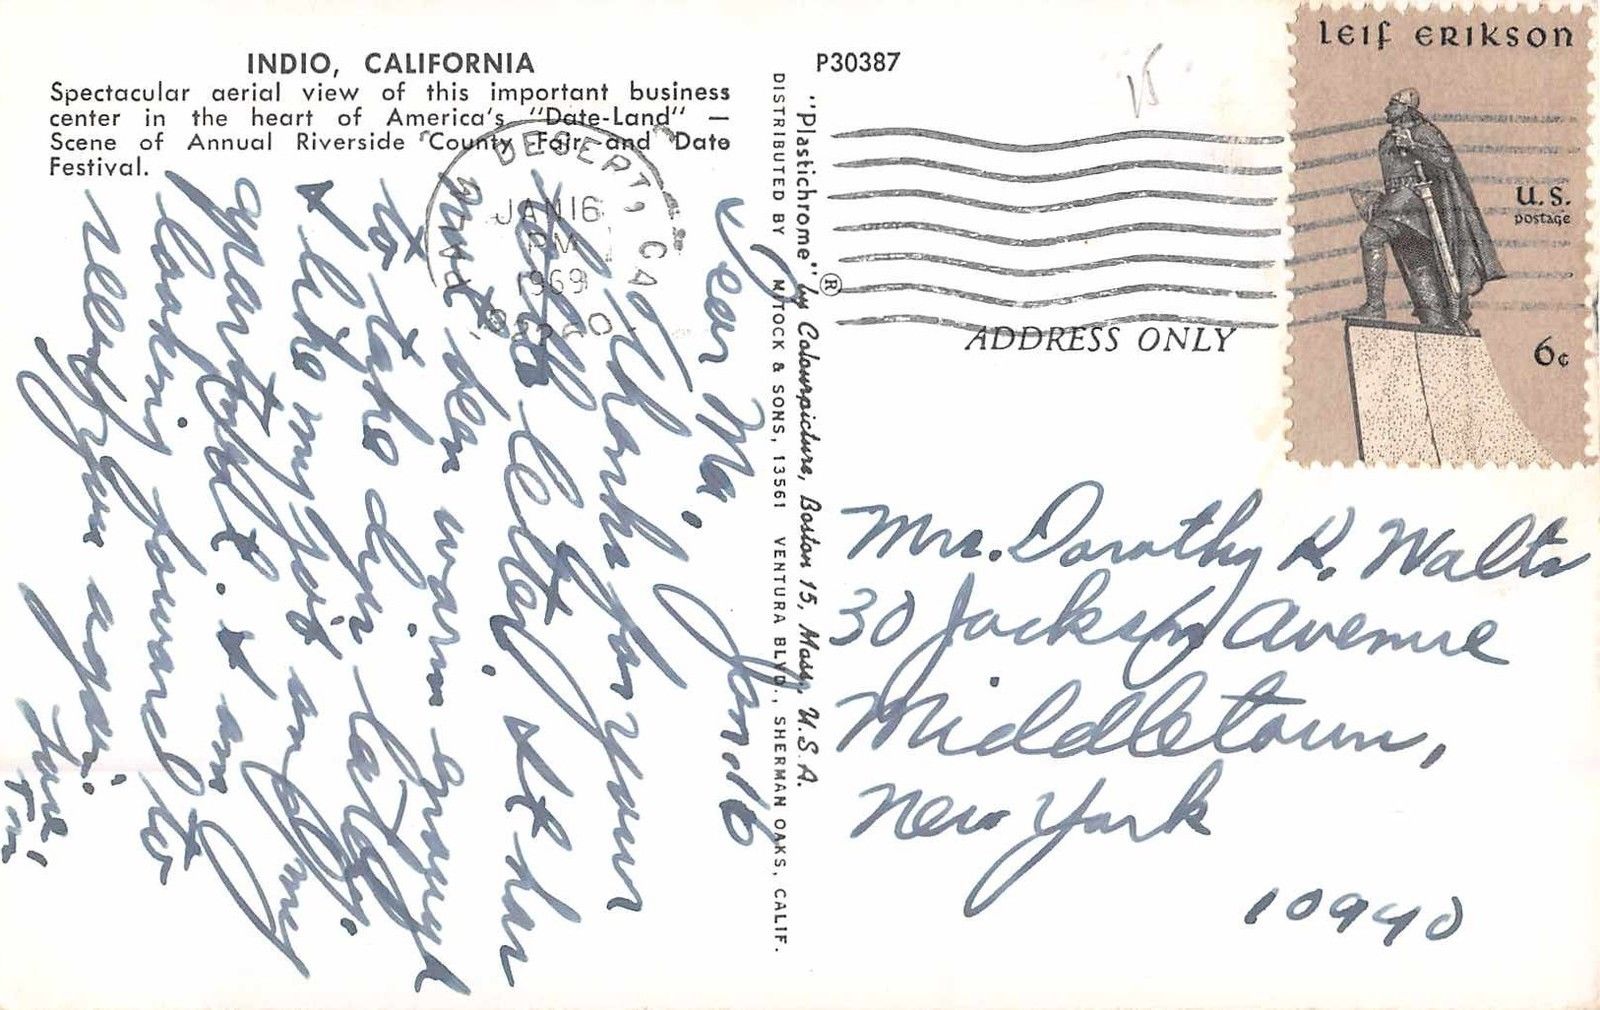 INDIO, CALIFORNIA
Spectacular aerial view of this important business
center in the heart of America's "Date-Land" —
Scene of Annual Riverside County Fair and Date
Festival.
P30387
LEIF ERIKSON
U.S.
postage
6¢
PALM DESERT, CA
JAN 16
PM
1969
92260
DISTRIBUTED BY MITOCK & SONS, 13561 VENTURA BLVD., SHERMAN OAKS, CALIF.
"Plastichrome" ® by Colourpicture, Boston 15, Mass., U.S.A.
ADDRESS ONLY
Jan. 16
Dear Ma,
Thanks for your
letter. It has
just been warm enough
to take dips lately.
I like my
apartment. I am
looking forward to
seeing you again.
Love,
Tom
Mrs. Dorothy R. Walts
30 Jackson Avenue
Middletown,
New York
10940